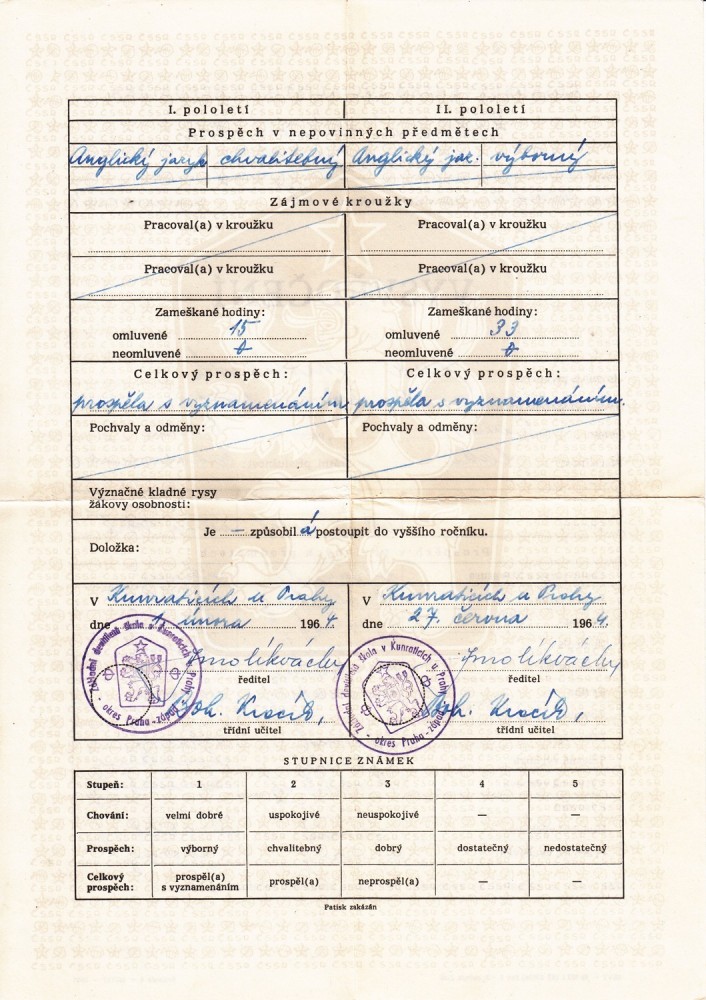 I. pololetí II. pololetí
Prospěch v nepovinných předmětech
Anglický jazyk chvalitebný Anglický jaz. výborný
Zájmové kroužky
Pracoval(a) v kroužku Pracoval(a) v kroužku
Pracoval(a) v kroužku Pracoval(a) v kroužku
Zameškané hodiny: Zameškané hodiny:
omluvené 15 omluvené 33
neomluvené 0 neomluvené 0
Celkový prospěch: Celkový prospěch:
prospěla s vyznamenáním prospěla s vyznamenáním.
Pochvaly a odměny: Pochvaly a odměny:
Význačné kladné rysy
žákovy osobnosti:
Je — způsobil á postoupit do vyššího ročníku.
Doložka:
V Kunraticích u Prahy V Kunraticích u Prahy
dne 1. února 1964. dne 27. června 1964.
Základní devítiletá škola v Kunraticích u Prahy - okres Praha-západ
Základní devítiletá škola v Kunraticích u Prahy - okres Praha-západ
ředitel ředitel
třídní učitel třídní učitel
STUPNICE ZNÁMEK
Stupeň: 1 2 3 4 5
Chování: velmi dobré uspokojivé neuspokojivé — —
Prospěch: výborný chvalitebný dobrý dostatečný nedostatečný
Celkový prospěch: prospěl(a) s vyznamenáním prospěl(a) neprospěl(a) — —
Patisk zakázán